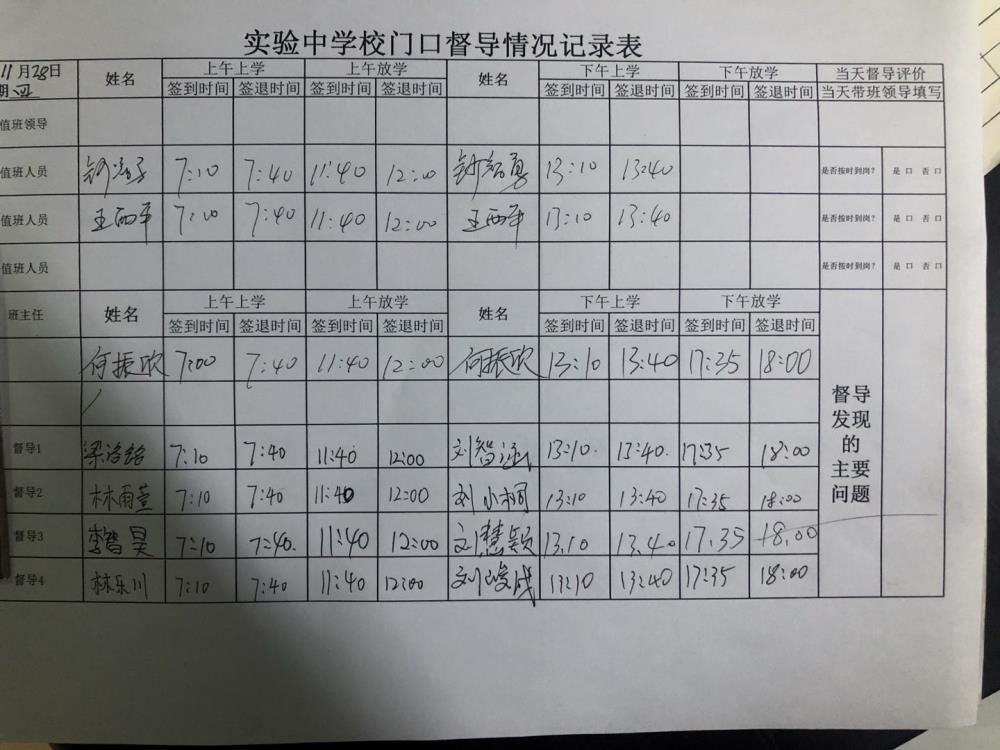 实验中学校门口督导情况记录表
11月28日 姓名 上午上学 上午放学 姓名 下午上学 下午放学 当天督导评价
期四 签到时间 签退时间 签到时间 签退时间 签到时间 签退时间 签到时间 签退时间 当天带班领导填写
值班领导
值班人员 7:10 7:40 11:40 12:00 13:10 13:40 是否按时到岗? 是 口 否 口
值班人员 王西平 7:10 7:40 11:40 12:00 王西平 13:10 13:40 是否按时到岗? 是 口 否 口
值班人员 是否按时到岗? 是 口 否 口
班主任 姓名 上午上学 上午放学 姓名 下午上学 下午放学
签到时间 签退时间 签到时间 签退时间 签到时间 签退时间 签到时间 签退时间
何振欧 7:00 7:40 11:40 12:00 何振欧 13:10 13:40 17:35 18:00
督导发现的主要问题
督导1 7:10 7:40 11:40 12:00 刘智涵 13:10. 13:40. 17:35 18:00
督导2 林雨萱 7:10 7:40 11:40 12:00 刘小桐 13:10 13:40 17:35 18:00
督导3 李智昊 7:10 7:40. 11:40 12:00 刘慧颖 13.10 13.40 17.35 18.00
督导4 林乐川 7:10 7:40 11:40 12:00 刘峻成 13:10 13:40 17:35 18:00